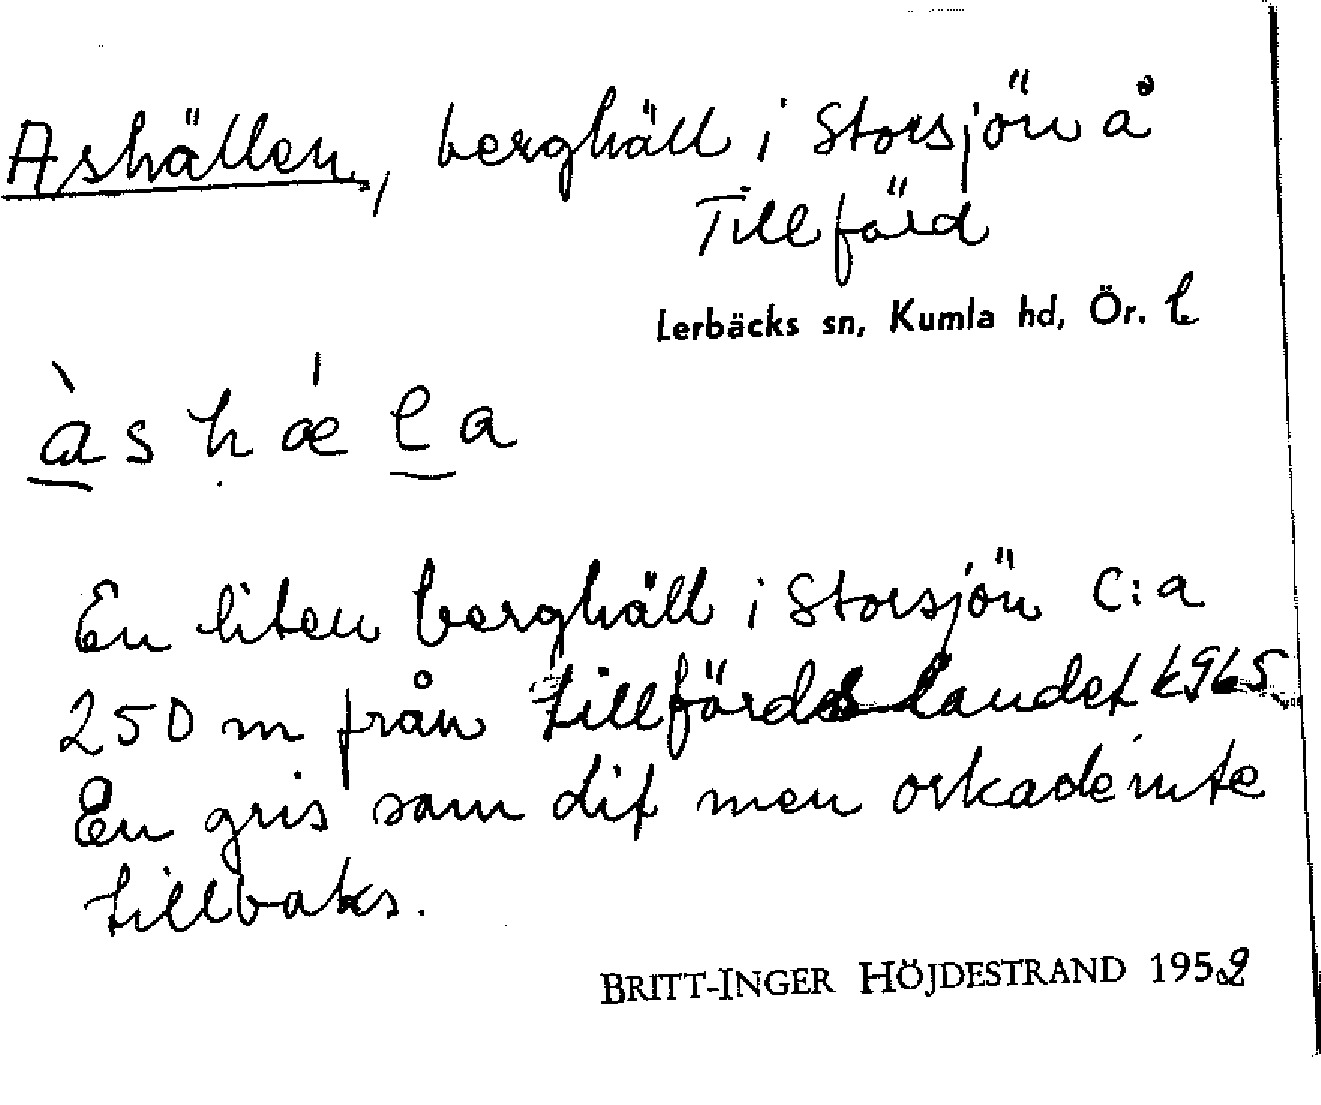 Ashällen, berghäll i Storsjön å
Tillfärd
Lerbäcks sn, Kumla hd, Ör. l
àshǽla
En liten berghäll i Storsjön c:a
250 m från tillförds landet k965
En gris sam dit men orkade inte
tillbaks.
BRITT-INGER HÖJDESTRAND 1952